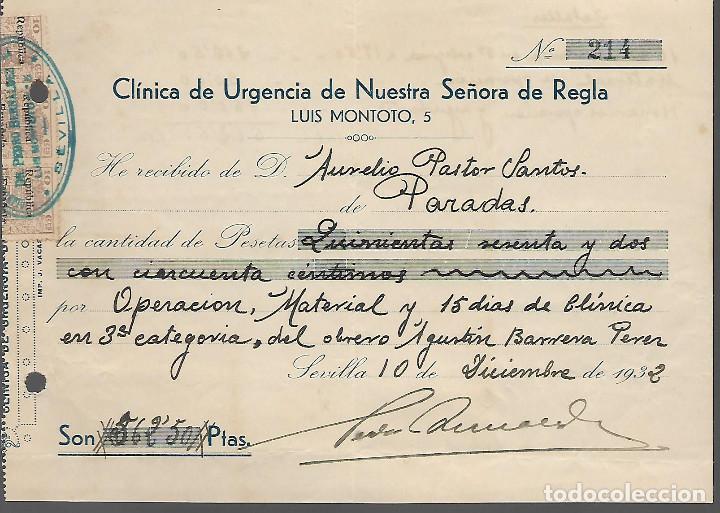 Nº 214
Clínica de Urgencia de Nuestra Señora de Regla
LUIS MONTOTO, 5
He recibido de D. Aurelio Pastor Santos.
de Paradas.
la cantidad de Pesetas Quinientas sesenta y dos
con cincuenta céntimos
por Operacion, Material y 15 dias de Clínica
en 3ª categoria, del obrero Agustín Barrera Perez
Sevilla 10 de Diciembre de 1932
Son 562'50 Ptas.
SEVILLA
República
República
República
IMP. J.
todocoleccion.net